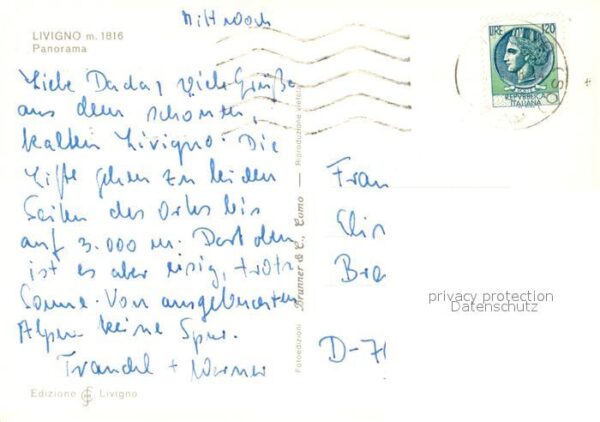 Mittwoch
LIVIGNO m. 1816
Panorama
LIRE 120
REPVBBLICA
ITALIANA
Liebe Dada, viele Grüße
aus dem schönen,
kalten Livigno. Die
Lifte gehen zu beiden
Seiten des Ortes bis
auf 3.000 m. Dort oben
ist es aber eisig, trotz
Sonne. Von ausgebuchten
Alpen keine Spur.
Traudel + Werner
Edizione Livigno
Fotoedizioni Brunner & C., Como — Riproduzione vietata
Frau
Elis
Bra
D-71
privacy protection
Datenschutz